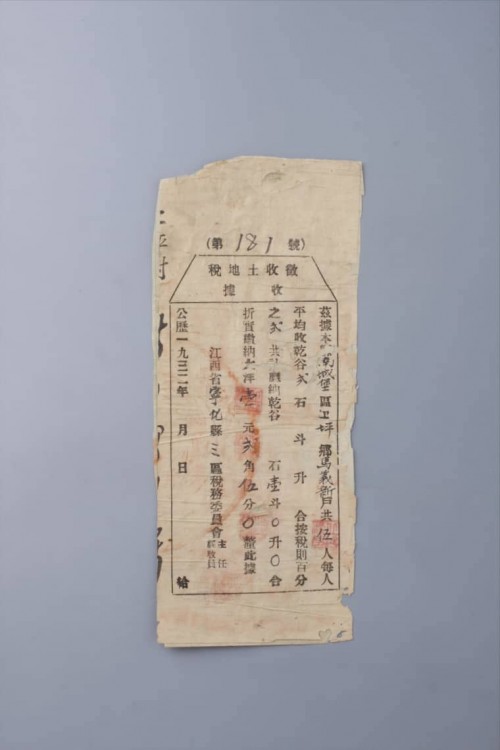 (第181號)
徵收土地稅
收據
茲據本 城堡區上坪鄉馬義新戶共伍人每人
平均收乾谷弍石 斗 升 合按稅則百分
之弍共計應納乾谷 石壹斗0升0合
折實繳納大洋壹元弍角伍分0釐此據
江西省寧化縣三區稅務委員會主任
員
公歷一九三二年 月 日 給